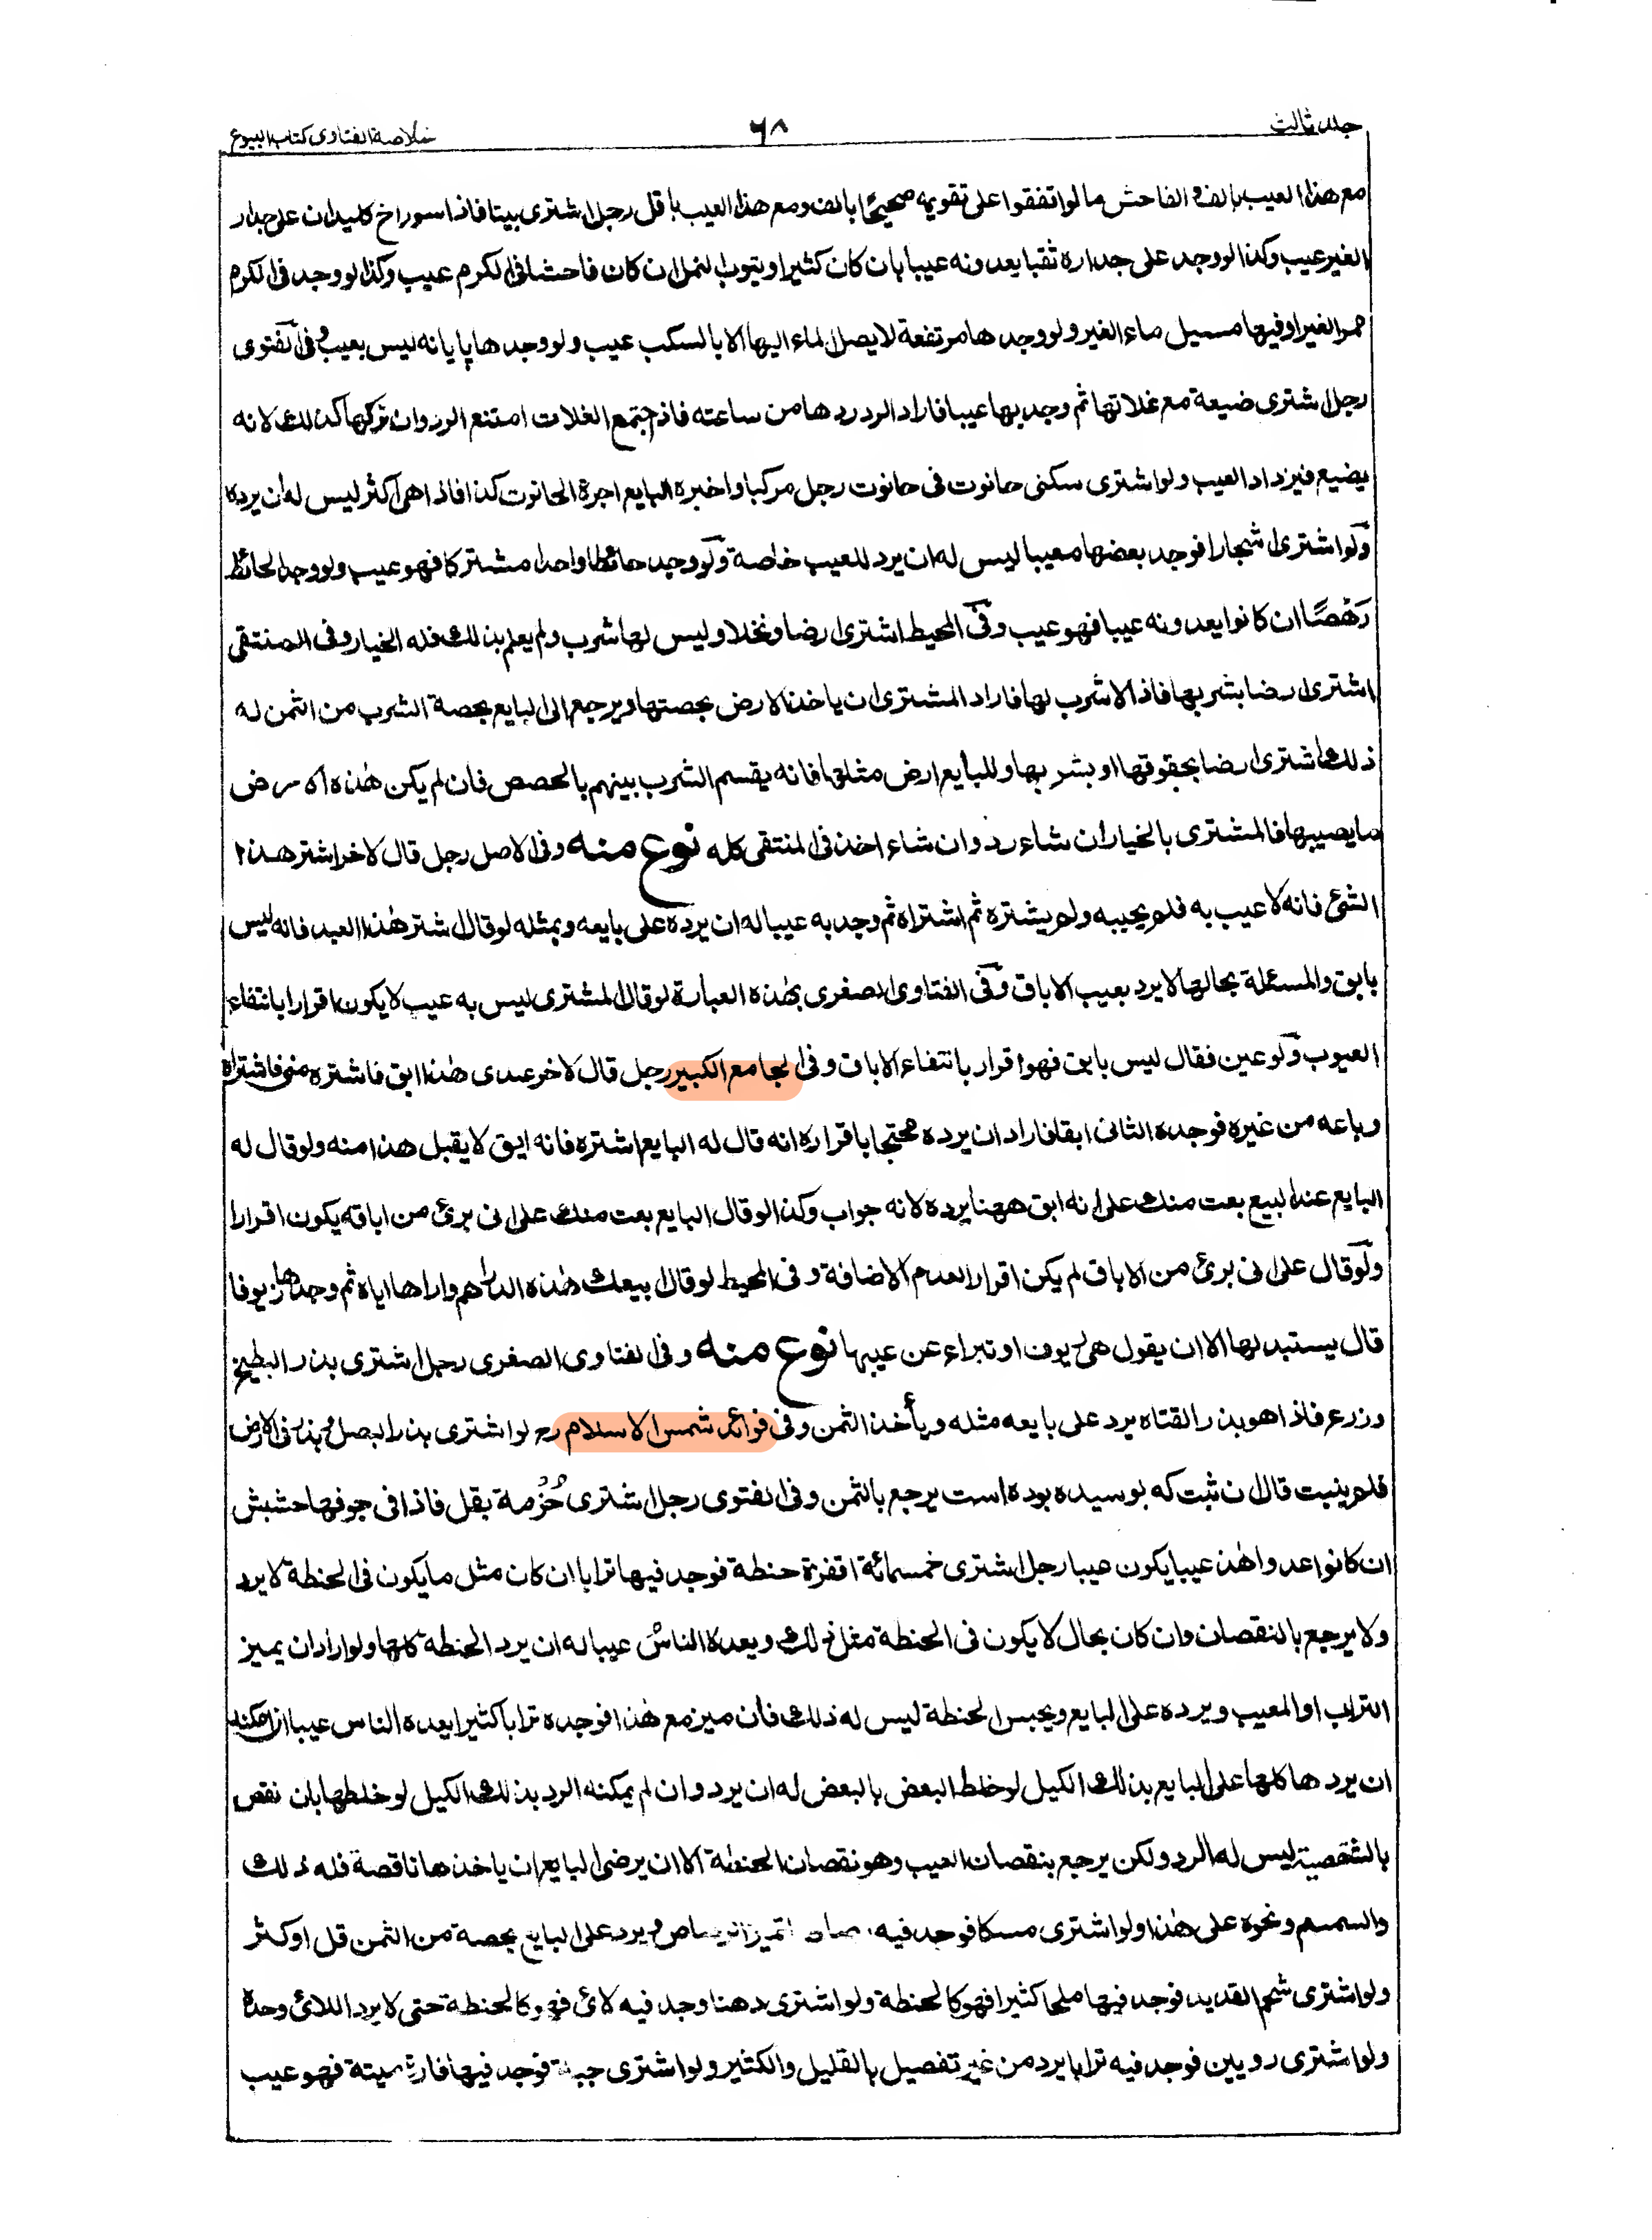 جلد ثالث ٦٨ خلاصة الفتاوى كتاب البيوع
مع هذا العيب بالف و الفاحش ما لو اتفقوا على تقويمه صحيحًا بالف ومع هذا العيب باقل رجل اشترى بيتا فاذا سوراخ كليدان على جدار
الغير عيب وكذا لو وجد على جداره ثقبا يعدونه عيبا بان كان كثيرا وبيوت النمل ان كان فاحشا فى الكرم عيب وكذا لو وجد فى الكرم
ممر الغير او فيها مسيل ماء الغير ولو وجدها مرتفعة لا يصل الماء اليها الا بالسكب عيب ولو وجدها پاپانه ليس بعيب وفى الفتوى
رجل اشترى ضيعة مع غلاتها ثم وجد بها عيبا فاراد الرد ردها من ساعته فاذا جتمع الغلات امتنع الرد وان تركها كذلك لانه
يضيع فيزداد العيب ولو اشترى سكنى حانوت فى حانوت رجل مركبا واخبره البايع اجرة الحانوت كذا فاذا هى اكثر ليس له ان يرده
ولو اشترى اشجارا فوجد بعضها معيبا ليس له ان يرد للعيب خاصة ولو وجد حائطا واحدا مشتركا فهو عيب ولو وجد الحائط
رَهْصًا ان كانوا يعدونه عيبا فهو عيب وفى المحيط اشترى ارضا ونخلا وليس لها شرب ولم يعلم بذلك فله الخيار وفى المنتقى
اشترى ارضا بشربها فاذا لا شرب لها فاراد المشترى ان ياخذ الارض بحصتها ويرجع الى البايع بحصة الشرب من الثمن له
ذلك اشترى ارضا بحقوقها او بشربها وللبايع ارض مثلها فانه يقسم الشرب بينهم بالحصص فان لم يكن هذه الارض
ما يصيبها فالمشترى بالخيار ان شاء رد وان شاء اخذ فى المنتقى كله نوع منه وفى الاصل رجل قال لاخر اشتر هذا
الشئ فانه لا عيب به فلم يجيبه ولم يشتره ثم اشتراه ثم وجد به عيبا له ان يرده على بايعه وبمثله لو قال اشتر هذا العبد فانه ليس
بابق والمسئلة بحالها لا يرد بعيب الاباق وفى الفتاوى الصغرى بهذه العبارة لو قال المشترى ليس به عيب لا يكون اقرارا بانتفاء
العيوب ولو عين فقال ليس بابق فهو اقرار بانتفاء الاباق وفى الجامع الكبير رجل قال لاخر عبدى هذا ابق فاشتره منى فاشتراه
وباعه من غيره فوجده الثانى ابقا فاراد ان يرده محتجا باقراره انه قال له البايع اشتره فانه ابق لا يقبل هذا منه ولو قال له
البايع عند البيع بعت منك على انه ابق ههنا يرده لانه جواب وكذا لو قال البايع بعت منك على انى برئ من اباقه يكون اقرارا
ولو قال على انى برئ من الاباق لم يكن اقرارا لعدم الاضافة وفى المحيط لو قال ابيعك هذه الدراهم واراها اياه ثم وجدها زيوفا
قال يستبدلها الا ان يقول هى زيوف او تبراء عن عيبها نوع منه وفى الفتاوى الصغرى رجل اشترى بذر البطيخ
وزرع فاذا هو بذر القثاه يرد على بايعه مثله ويأخذ الثمن وفى فوائد شمس الاسلام رح لو اشترى بذر البصل و بذر فى الارض
فلم ينبت قال ان ثبت كه بوسيده بوده است يرجع بالثمن وفى الفتوى رجل اشترى حُزُمة بقل فاذا فى جوفها حشيش
ان كانوا عدوا هذا عيبا يكون عيبا رجل اشترى خمسمائة اقفزة حنطة فوجد فيها ترابا ان كان مثل ما يكون فى الحنطة لا يرد
ولا يرجع بالنقصان وان كان بحال لا يكون فى الحنطة مثل ذلك ويعده الناس عيبا له ان يرد الحنطة كلها ولو اراد ان يميز
التراب او المعيب ويرده على البايع ويحبس الحنطة ليس له ذلك فان ميز مع هذا فوجده ترابا كثيرا يعده الناس عيبا ان امكنه
ان يردها كلها على البايع بذلك الكيل لو خلط البعض بالبعض له ان يرد وان لم يمكنه الرد بذلك الكيل لو خلطها بان نقص
ليس له الرد ولكن يرجع بنقصان العيب وهو نقصان الحنطة الا ان يرضى البايع ان ياخذها ناقصة فله ذلك
والسمسم ونحوه على هذا ولو اشترى مسكا فوجد فيه الرصاص و يرد على البايع بحصة من الثمن قل او كثر
ولو اشترى شحم القديد فوجد فيها ملحا كثيرا فهو كالحنطة ولو اشترى دهنا وجد فيه لائ فهو كالحنطة حتى لا يرد اللائ وحده
ولو اشترى رويين فوجد فيه ترابا يرد من غير تفصيل بالقليل والكثير ولو اشترى جبة فوجد فيها فارة ميتة فهو عيب